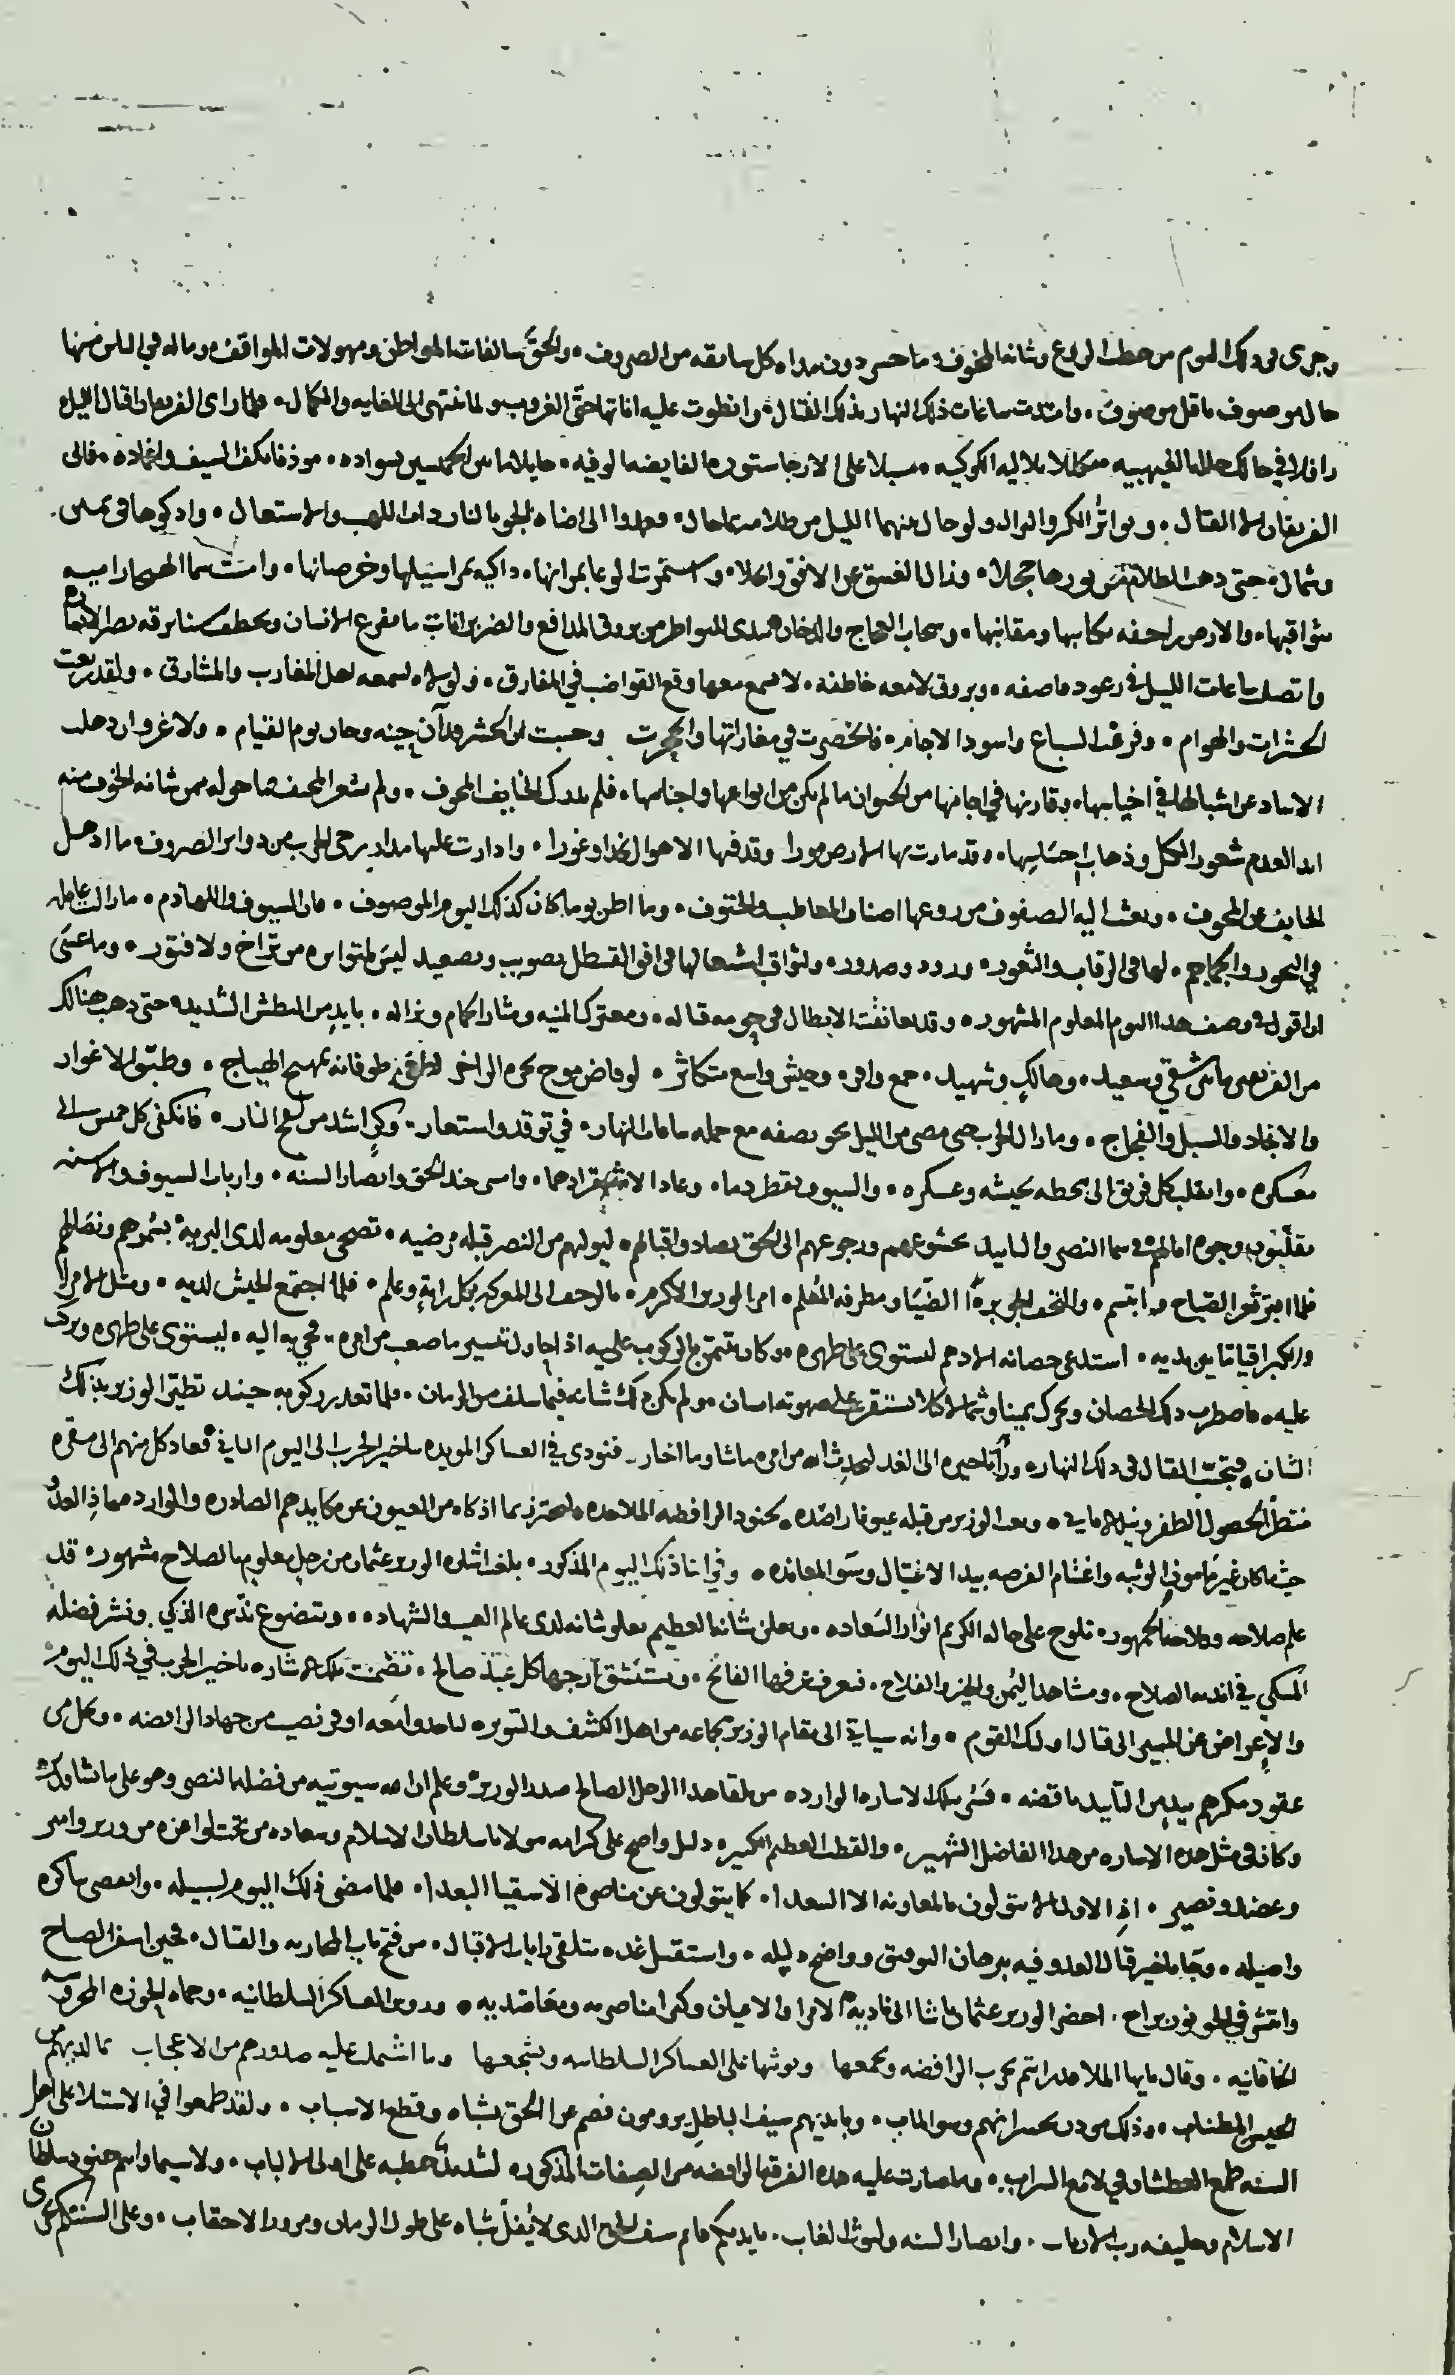 وجرى في ذلك اليوم من خطب الرايع وشانه المخوف ما حسر دون مداه كل سابقه من الصروف والحق سالفات المواطن ومهولات المواقف وماله في الناس منها
حال موصوف ما قل موصوف وامتدت ساعات ذلك النهار بذلك القتال وانطوت عليه اناتها حتى الغروب ولما انتهى الى الغايه والكمال فلما راى الفريقان اقبال الليل
رافلا في حالك حلله الغيهبيه مكللا بلاليه الكوكبيه مسبلا على الارجا ستوره الفايضه الوفيه حايلا ما بين الخميسين بسواده موذنا بكف السيف واغماده فابى
الفريقان الا القتال وتواتر الكر والنزال ولو حال بينهما الليل من ظلامه بما حال فعمدوا الى اضاءه الجو بالنار ذات اللهب والاشتعال واذكوها في يمين
وشمال حتى ذهب الظلام من نورها مجفلا وزال الغسق عن الافق وانجلا واستمرت الوغا بمرانها ذاكيه بمراسيلها وخرصانها وامست سما الهيجا راميه
بثواقبها والارض راجفه بكتايبها ومقانبها وسحاب العجاج والدخان مبدى للنواظر من بروق المدافع والضربزانات ما يفزع الانسان ويخطف سنا برقه بصر الانسان
واتصلت ساعات الليل في رعود قاصفه وبروق لامعه خاطفه لا يسمع معها وقع القواضب في المفارق ولولاه لسمعه اهل المغارب والمشارق ولقد ريعت
الحشرات والهوام وفرقت السباع واسود الاجام فانحصرت في مغاراتها وانجحرت وحسبت ان الحشر قد آن حينه وحان يوم القيام ولا غرو ان ذهلت
الاساد عن اشبالها في اخياسها وقارنها في اجامها من الحيوان ما لم يكن من انواعها واجناسها فلم يدرك الخايف المخوف ولم يشعر المخيف بما حوله ممن شانه الخوف منه
اذ العدم شعور الكل وذهاب احساسها وقد مارت بها الارض مورا وقذفتها الاهوال نجدا وغورا وادارت عليها مدار رحى الحرب من دواير الصروف ما اذهل
الخايف عن المخوف وبعث اليه الصفوف من روعها اصناف المعاطب والحتوف وما اظن يوما كان كذلك اليوم الموصوف فان السيوف واللهاذم مازالت عامله
في النحور والجماجم لها في الرقاب والثغور ورود وصدور ولثواقب اشتعالها في افق القسطل تصويب وتصعيد ليس لمتواتره من تراخ ولا فتور وما عسى
ان اقول في وصف هذا اليوم المعلوم المشهور وقد تعانقت الابطال في حومه قتاله ومعترك المنيه ومثار اكام ونزاله بايد من البطش الشديده حتى ذهب هنالك
من الفريقين ما بين شقي وسعيد وهالك وشهيد جمع وافر وجيش واسع متكاثر لو فاض موج بحره الزاخر لطبق طوفانه بمهيج الهياج وطبق الاغوار
والانجاد والسبل والفجاج وما زال الحرب حتى مضى من الليل نحو نصفه مع جمله ساعات النهار في توقد واستعار وكي اشد من لفح النار فانكفى كل خميس الى
معسكره وانقلب كل فريق الى محطه بجيشه وعسكره والسيوف تقطر دما وعاد الاشقر ادهما وامسى جند الحق وانصار السنه وارباب السيوف والاسنه
يقلبون وجوه امالهم في سما النصر والتاييد بخشوعهم ورجوعهم الى الحق بصادق اقبالهم ليوليهم من النصر قبله مرضيه تضحى معلومه لدى البريه بسمرهم ونصالهم
فلما افتر ثغر الصباح وابتسم والتحف الجو برد الضيا ومطرفه المعلم امر الوزير الاكرم بالزحف الى المعركه بكل رايه وعلم فلما اجتمع الجيش لديه ومثل الامرا
والكبرا قياما بين يديه استدعى حصانه الادهم ليستوي على ظهره وكان يتيمن بالركوب عليه اذا حاول تيسير ما صعب من امره فجي به اليه ليستوى على ظهره ويركب
عليه فاضطرب ذلك الحصان وتحرك يمينا وشمالا كيلا يستقر على صهوته انسان ولم يكن ذلك شانه فيما سلف من الزمان فلما تعذر ركوبه حينئذ تطير الوزير بذلك
الشان وتجنب القتال في ذلك النهار وراى تاخيره الى الغد ليحدث الله من امره ما شا وما اختار فنودى في العساكر المويده بتاخير الحرب الى اليوم الثاني فعاد كل منهم الى مقره
منتظرا لحصول الظفر ونيل الاماني وبعث الوزير من قبله عيونا راصده لجنود الرافضه الملاحده ما احترز بما اذكاه من العيون عن مكايدهم الصادره والوارده معاذ العدو
حيثما كان غير مامون الوثبه واغتنام الفرصه بيد الاغتيال وسو المعانده وفي اثنا ذلك اليوم المذكور بلغت اشاره الوزير عثمان من رجل معلوم بالصلاح مشهور قد
علم صلاحه وفلاحه الجمهور تلوح على حاله الكريم انوار السعاده ويعلن شانه العظيم بعلو شانه لدى عالم الغيب والشهاده ويتضوع نشره الذكي ونشر فضله
المسكي في انديه الصلاح ومشاهد اليمن والخير والفلاح فيعرف عرفها الفائح ويستنشق ارجها كل عبد صالح تضمنت تلك الاشاره تاخير الحرب في ذلك اليوم
والاعراض عن المسير الى قتال اولئك القوم وانه سياتي الى مقام الوزير بجماعه من اهل الكشف والتنوير لياخذوا معه اوفر نصيب من جهاد الرافضه ويحل من
عقود مكرهم بيمن التاييد ناقضه فسر بتلك الاشاره الوارده من تلقا هذا الرجل الصالح صدر الوزير وعلم ان الله سيوتيه من فضله النصر وهو على ما يشا قدير
وكان في مثل هذه الاشاره من هذا الفاضل الشهير والقطب العظيم الكبير دليل واضح على كرامه مولانا سلطان الاسلام وسعاده من تحت لوا عزه من وزير وامير
وعضد ونصير اذ الاوليا لا يتولون بالمعاونه الا السعدا كما يتولون عن مناصره الاشقيا البعدا فلما مضى ذلك اليوم لسبيله وانقضى باكره
واصيله وجا بالخير قتال العدو فيه برهان التوفيق وواضح دليله واستقبل غده بتلقي رايات الاقبال من فتح باب المحاربه والقتال فحين اسفر الصباح
وانتشر في الجو نور براح احضر الوزير عثمان باشا الى ناديه الامرا والاعيان وكبرا مناصريه ومعاضديه وذوى العساكر السلطانيه وحماه الحوزه المحروسه
الخاقانيه وقال يايها الملا هل رايتم تحزب الرافضه وتجمعها وتوثبها على العساكر السلطانيه وتشجعها وما اشتملت عليه صدورهم من الاعجاب بما لديهم من
الخميس المطناب وذلك موذن بخسرانهم وسو الماب وبايديهم سيف الباطل يرومون فصم عرا الحق بشباه وقطع الاسباب ولقد طمعوا في الاستيلا على اهل
السنه طمع العطشان في لامع السراب وما صارت عليه هذه الفرقه الرافضه من الصفات المذكوره لشديد خطبه على اولى الالباب ولا سيما وانتم جنود سلطان
الاسلام وخليفه رب الارباب وانصار السنه وليوث الغاب بايديكم قايم سيف الحق الذي لا يفل شباه على طول الزمان ومرور الاحقاب وعلى السنتكم